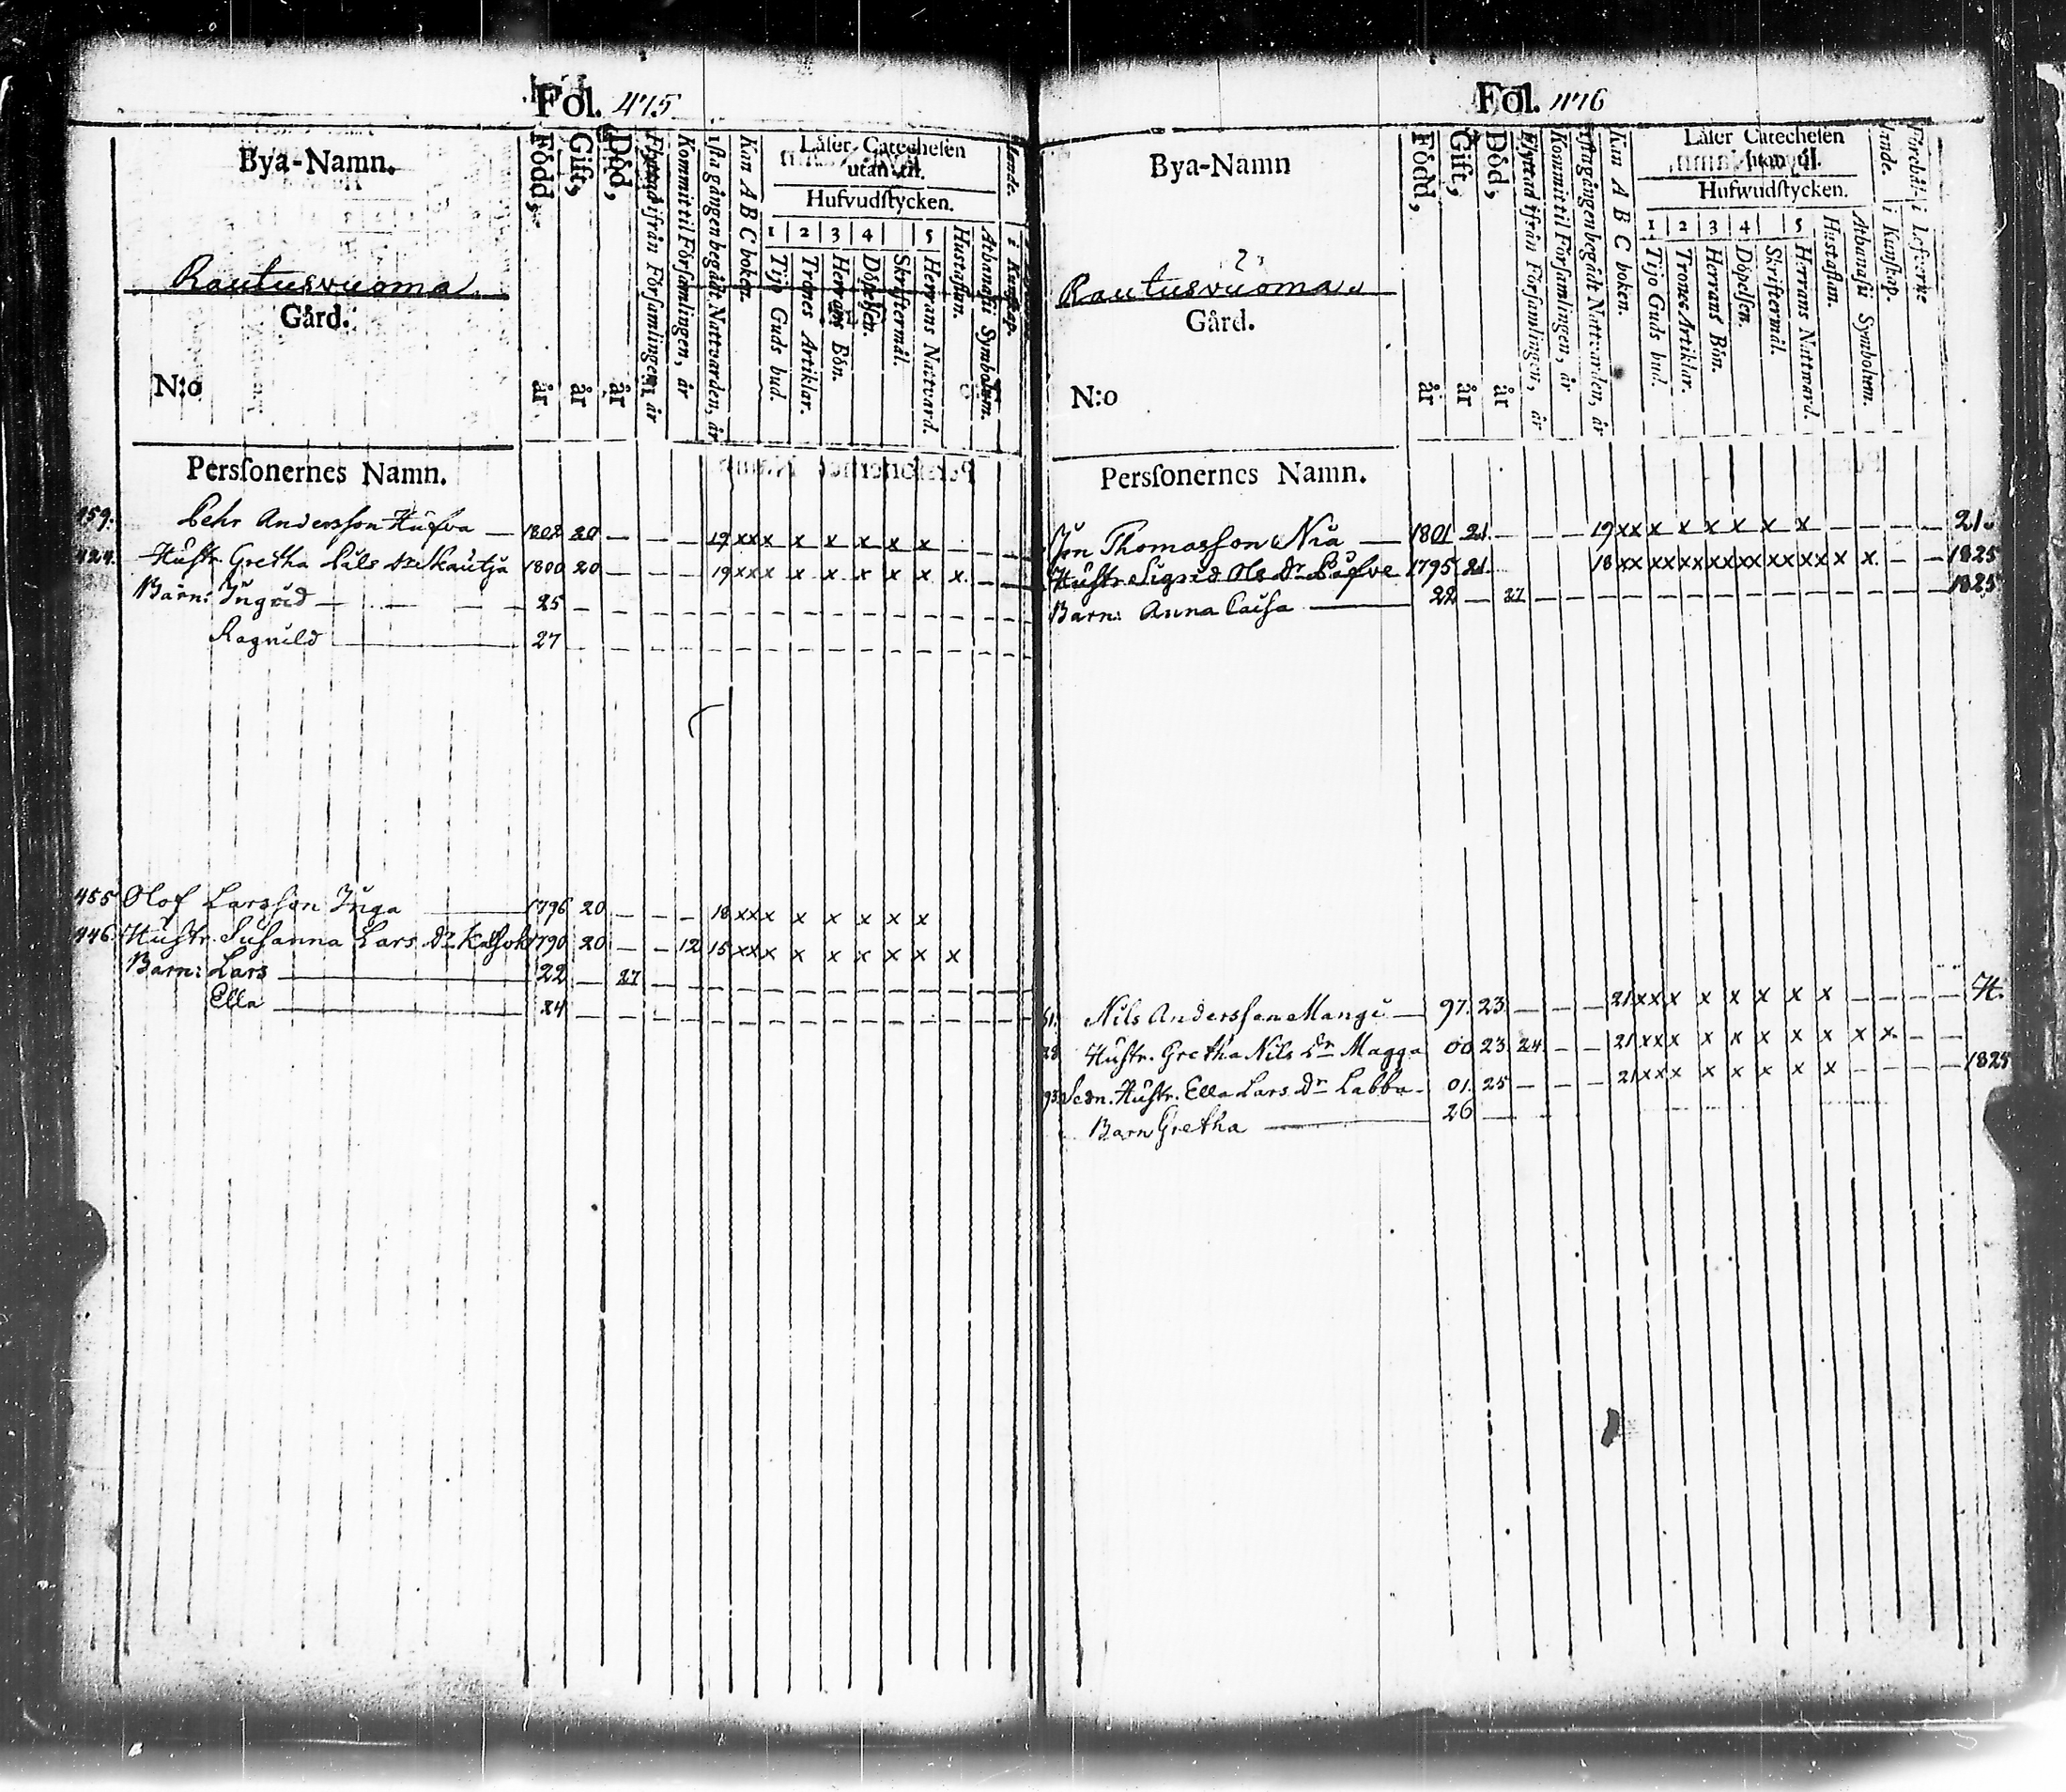 Fol. 475
Bya-Namn.
Rautusvuoma.
Gård.
N:o
Född, år
Gift, år
Död, år
Flyttad ifrån Församlingen, år
Kommit til Församlingen, år
1sta gången begådt Nattvarden, år
Kan A B C boken.
Läser Catechesen
utantil.
Hufvudstycken.
1 2 3 4 5
Tijo Guds bud.
Trones Artiklar.
Herrans Bön.
Döpelsen.
Skriftermål.
Herrans Nattvard.
Hustaflan.
Athanasii Symbolum.
Personernes Namn.
159. Pehr Andersson Hufva — 1802 20 — — — 19 x x x x x x x x — —
424. Hustr. Gretha Påls Dr Kautja 1800 20 — — — 19 x x x x x x x x x — —
Barn: Ingrid — 25 — —
Ragnild — 27 — —
455 Olof Larsson Inga — 1796 20 — — — 18 x x x x x x x x
446. Hustr. Susanna Lars Dr 1790 20 — — 12 15 x x x x x x x x x
Barn: Lars — 22 — 27 — —
Ella — 24 — —
Fol. 476
Bya-Namn
2
Rautusvuoma.
Gård.
N:o
Född, år
Gift, år
Död, år
Flyttad ifrån Församlingen, år
Kommit til Församlingen, år
1sta gången begådt Nattvarden, år
Kan A B C boken.
Läser Catechesen
utantil.
Hufwudstycken.
1 2 3 4 5
Tijo Guds bud.
Trones Artiklar.
Herrans Bön.
Döpelsen.
Skriftermål.
Herrans Nattvard.
Hustaflan.
Athanasii Symbolum.
i Kunskap.
i Lefterne
Personernes Namn.
Jon Thomasson Nia — 1801 21. — — — 19 x x x x x x x x — — — — 21.
Hustr. Sigrid Ols Dr 1795 21. 18 x x x x x x x x x x x x x x x x. — — 1825
Barn: Anna Caisa — 22 — 27 — — 1825
61. Nils Andersson Mangi — 97. 23. — — — 21 x x x x x x x x — — — —
Hustr. Gretha Nils Dr Magga 00 23 24. — — 21 x x x x x x x x x x. — —
93. Sedn. Hustr. Ella Lars Dr Labba — 01. 25 — — — 21 x x x x x x x x — — — — 1825
Barn Gretha — 26 —